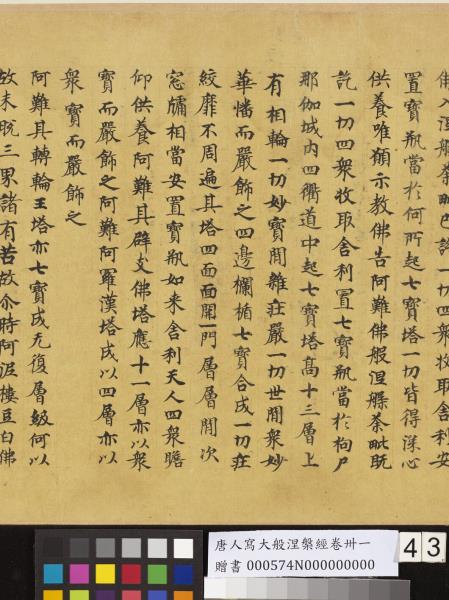 佛入涅槃荼毗已訖一切四衆收取舍利安
置寶瓶當於何所起七寶塔一切皆得深心
供養唯願示教佛告阿難佛般涅槃荼毗既
訖一切四衆收取舍利置七寶瓶當於拘尸
那伽城內四衢道中起七寶塔高十三層上
有相輪一切妙寶間雜莊嚴一切世間衆妙
華幡而嚴飾之四邊欄楯七寶合成一切莊
絞靡不周遍其塔四面面開一門層層間次
窓牖相當安置寶瓶如来舍利天人四衆瞻
仰供養阿難其辟支佛塔應十一層亦以衆
寶而嚴飾之阿難阿羅漢塔成以四層亦以
衆寶而嚴飾之
阿難其轉輪王塔亦七寶成无復層級何以
故未脫三界諸有苦故尒時阿泥樓豆白佛
唐人寫大般涅槃經卷卅一
贈書 000574N000000000
43